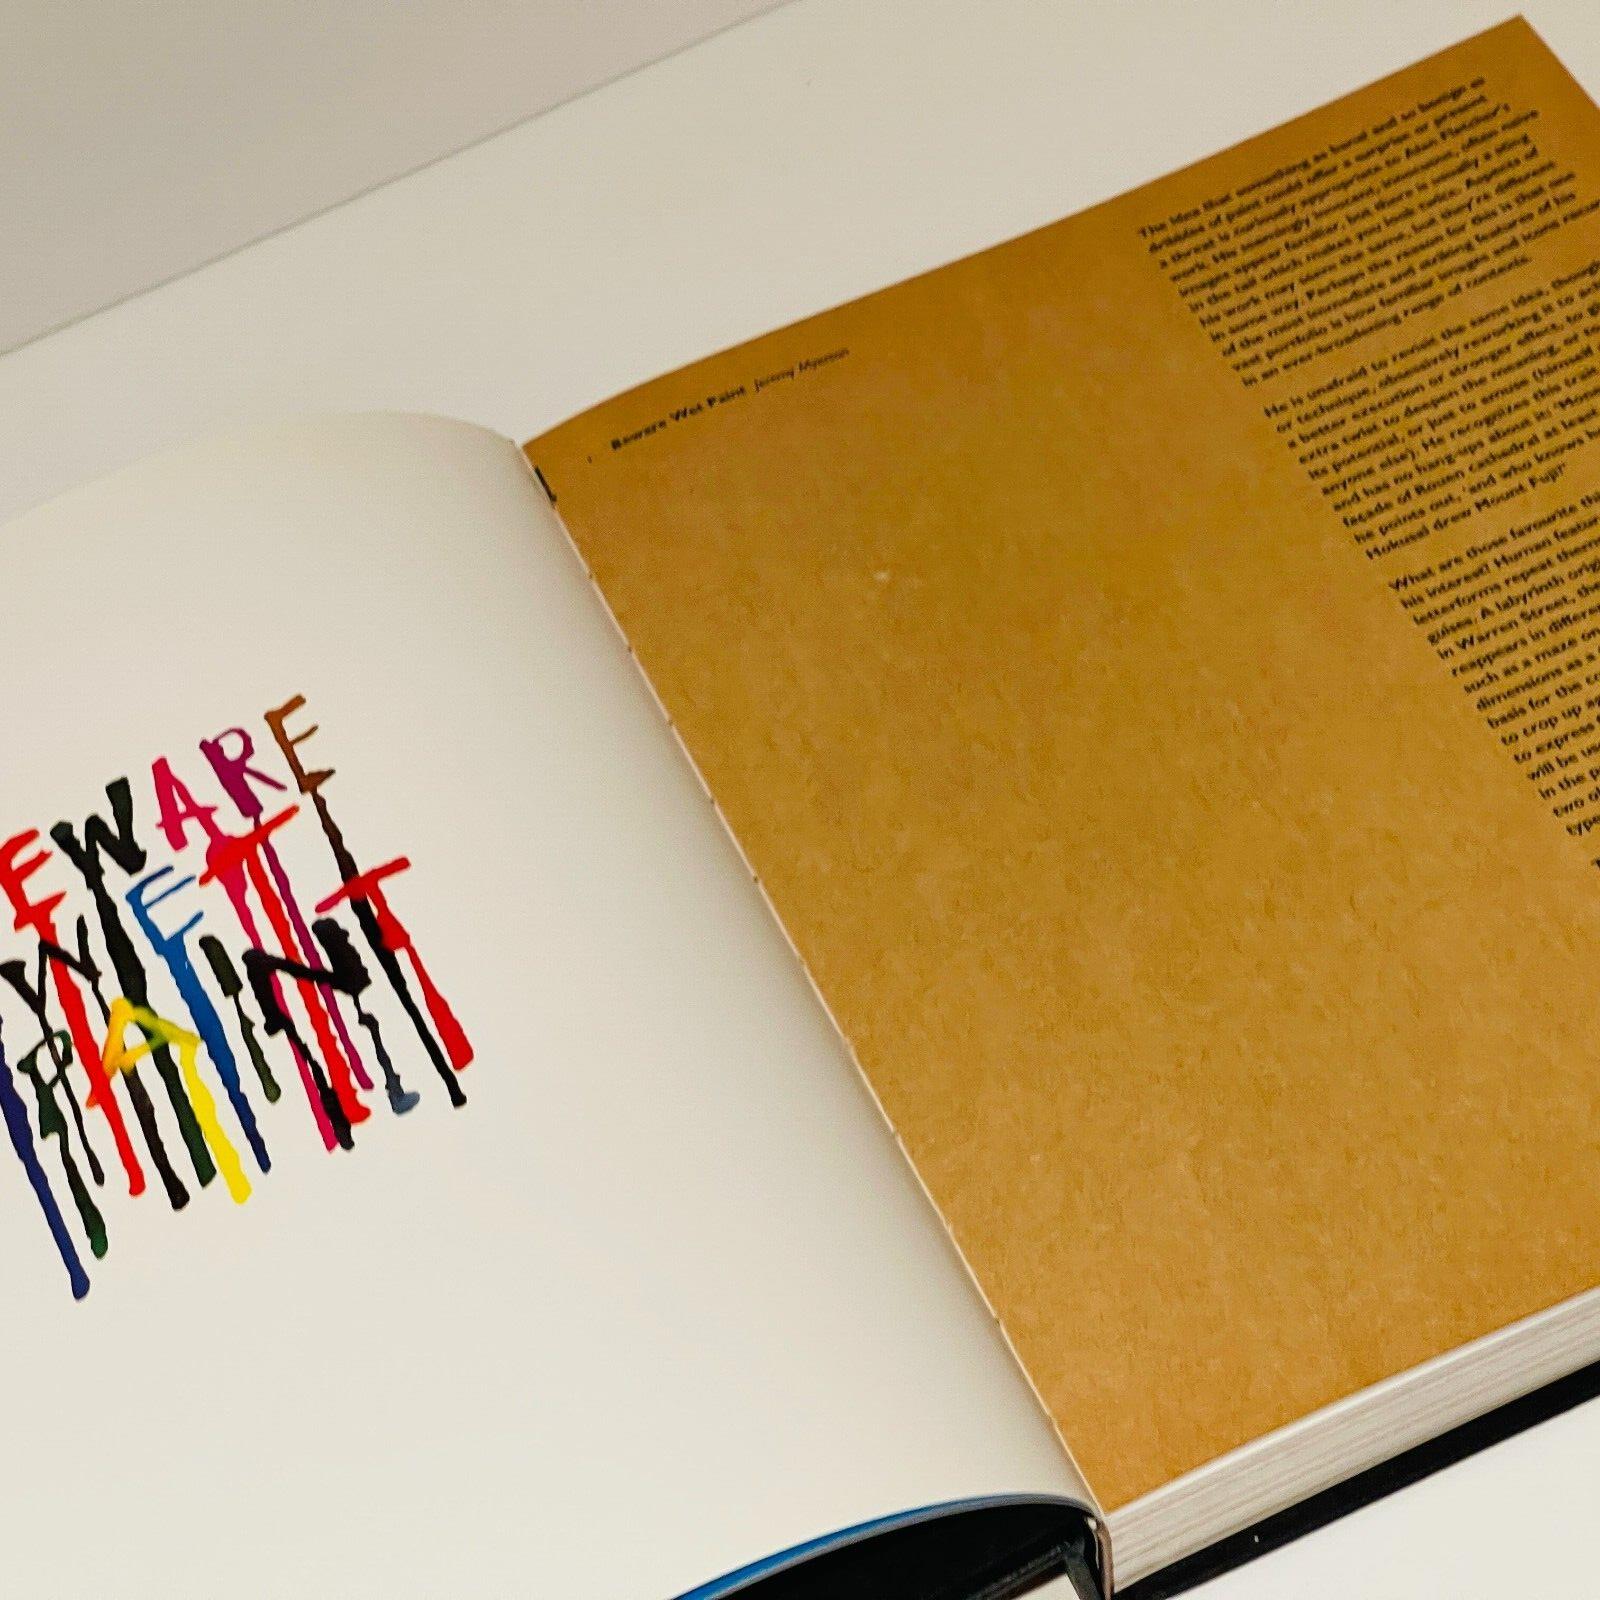 EWARE
WET
PAINT
Beware Wet Paint Jeremy Myerson
The idea that something as banal and so benign as
dribbles of paint could offer a surprise or present
a threat is curiously appropriate to Alan Fletcher's
work. His seemingly innocent, innocuous, often naive
images appear familiar, but there is usually a sting
in the tail which makes you look twice. Aspects of
his work may seem the same, but they're different
in some way. Perhaps the reason for this is that one
of the most immediate and striking features of his
vast portfolio is how familiar images and icons recur
in an ever-broadening range of contexts.
He is unafraid to revisit the same idea, though
or technique, obsessively reworking it to
a better execution or stronger effect, to
extra twist to deepen the meaning, or to
its potential, or just to amuse (himself
anyone else). He recognizes this trait
and has no hang-ups about it:
façade of Rouen cathedral at least
he points out, 'and who knows
Hokusai drew Mount Fuji!'
What are those favourite
his interest? Human
letterforms repeat
guises. A labyrinth
in Warren Street,
reappears in
such as a maze on
dimensions as a
basis for the
to crop up
to express
will be
in the
two